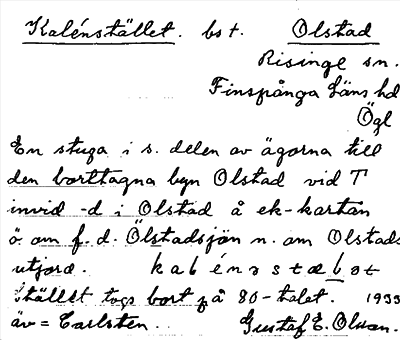 Kalénstället. bst. Olstad
Risinge sn.
Finspånga läns hd
Ögl
En stuga i s. delen av ägorna till
den borttagna byn Olstad vid T
invid -d i Olstad å ek-kartan
ö. om f.d. Ölstadsjön n. om Olstads
utjord.
Stället togs bort på 80-talet. 1933
äv = Carlsten. Gustaf E. Olson.